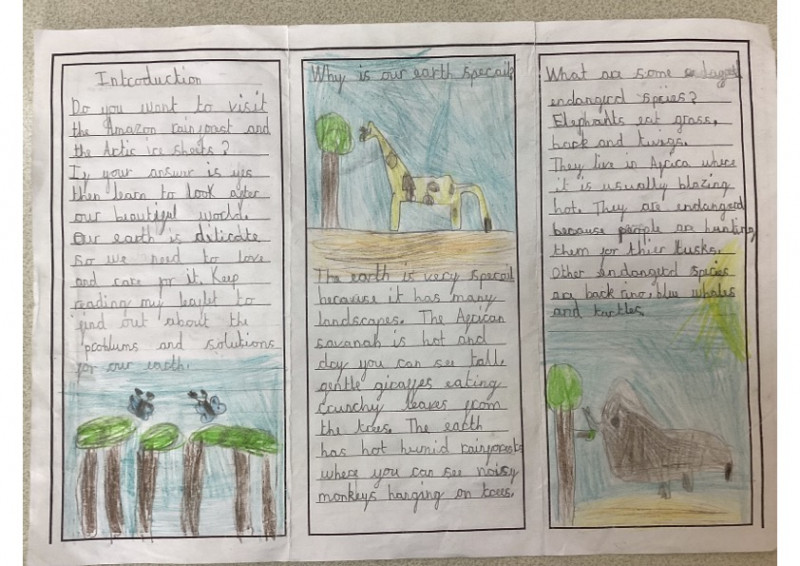 Introduction
Do you want to visit
the Amazon rainforast and
the Artic ice sheets?
If your answer is yes
then learn to look after
our beautiful world.
Our earth is dilicate
so we need to love
and care for it. Keep
reading my leaflet to
find out about the
problums and solutions
for our earth.
Why is our earth specail?
The earth is very specail
because it has many
landscapes. The African
savanah is hot and
dry you can see tall,
gentle giraffes eating
crunchy leaves from
the trees. The earth
has hot humid rainforests
where you can see noisy
monkeys hanging on trees.
What are some
endangerd species?
Elephants eat grass,
bark and twigs.
They live in Africa where
it is usually blazing
hot. They are endangerd
because people are hunting
them for thier tusks.
Other endangerd species
are back rino, blue whales
and turtles